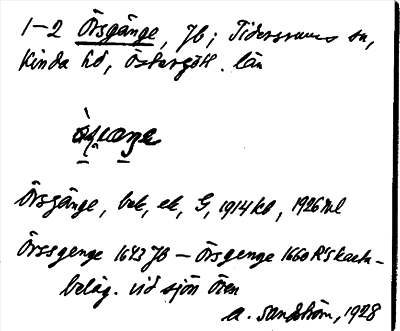 1-2 Örsgänge, Jb; Tidersrums sn,
Kinda hd, Östergötl. län
Örsgänge, bek, ek, G, 1914 kb, 1926 ml
Örssgenge 1643 Jb – Örsgenge 1660 Rskart-
beläg. vid sjön Ören
A. Sandström, 1928